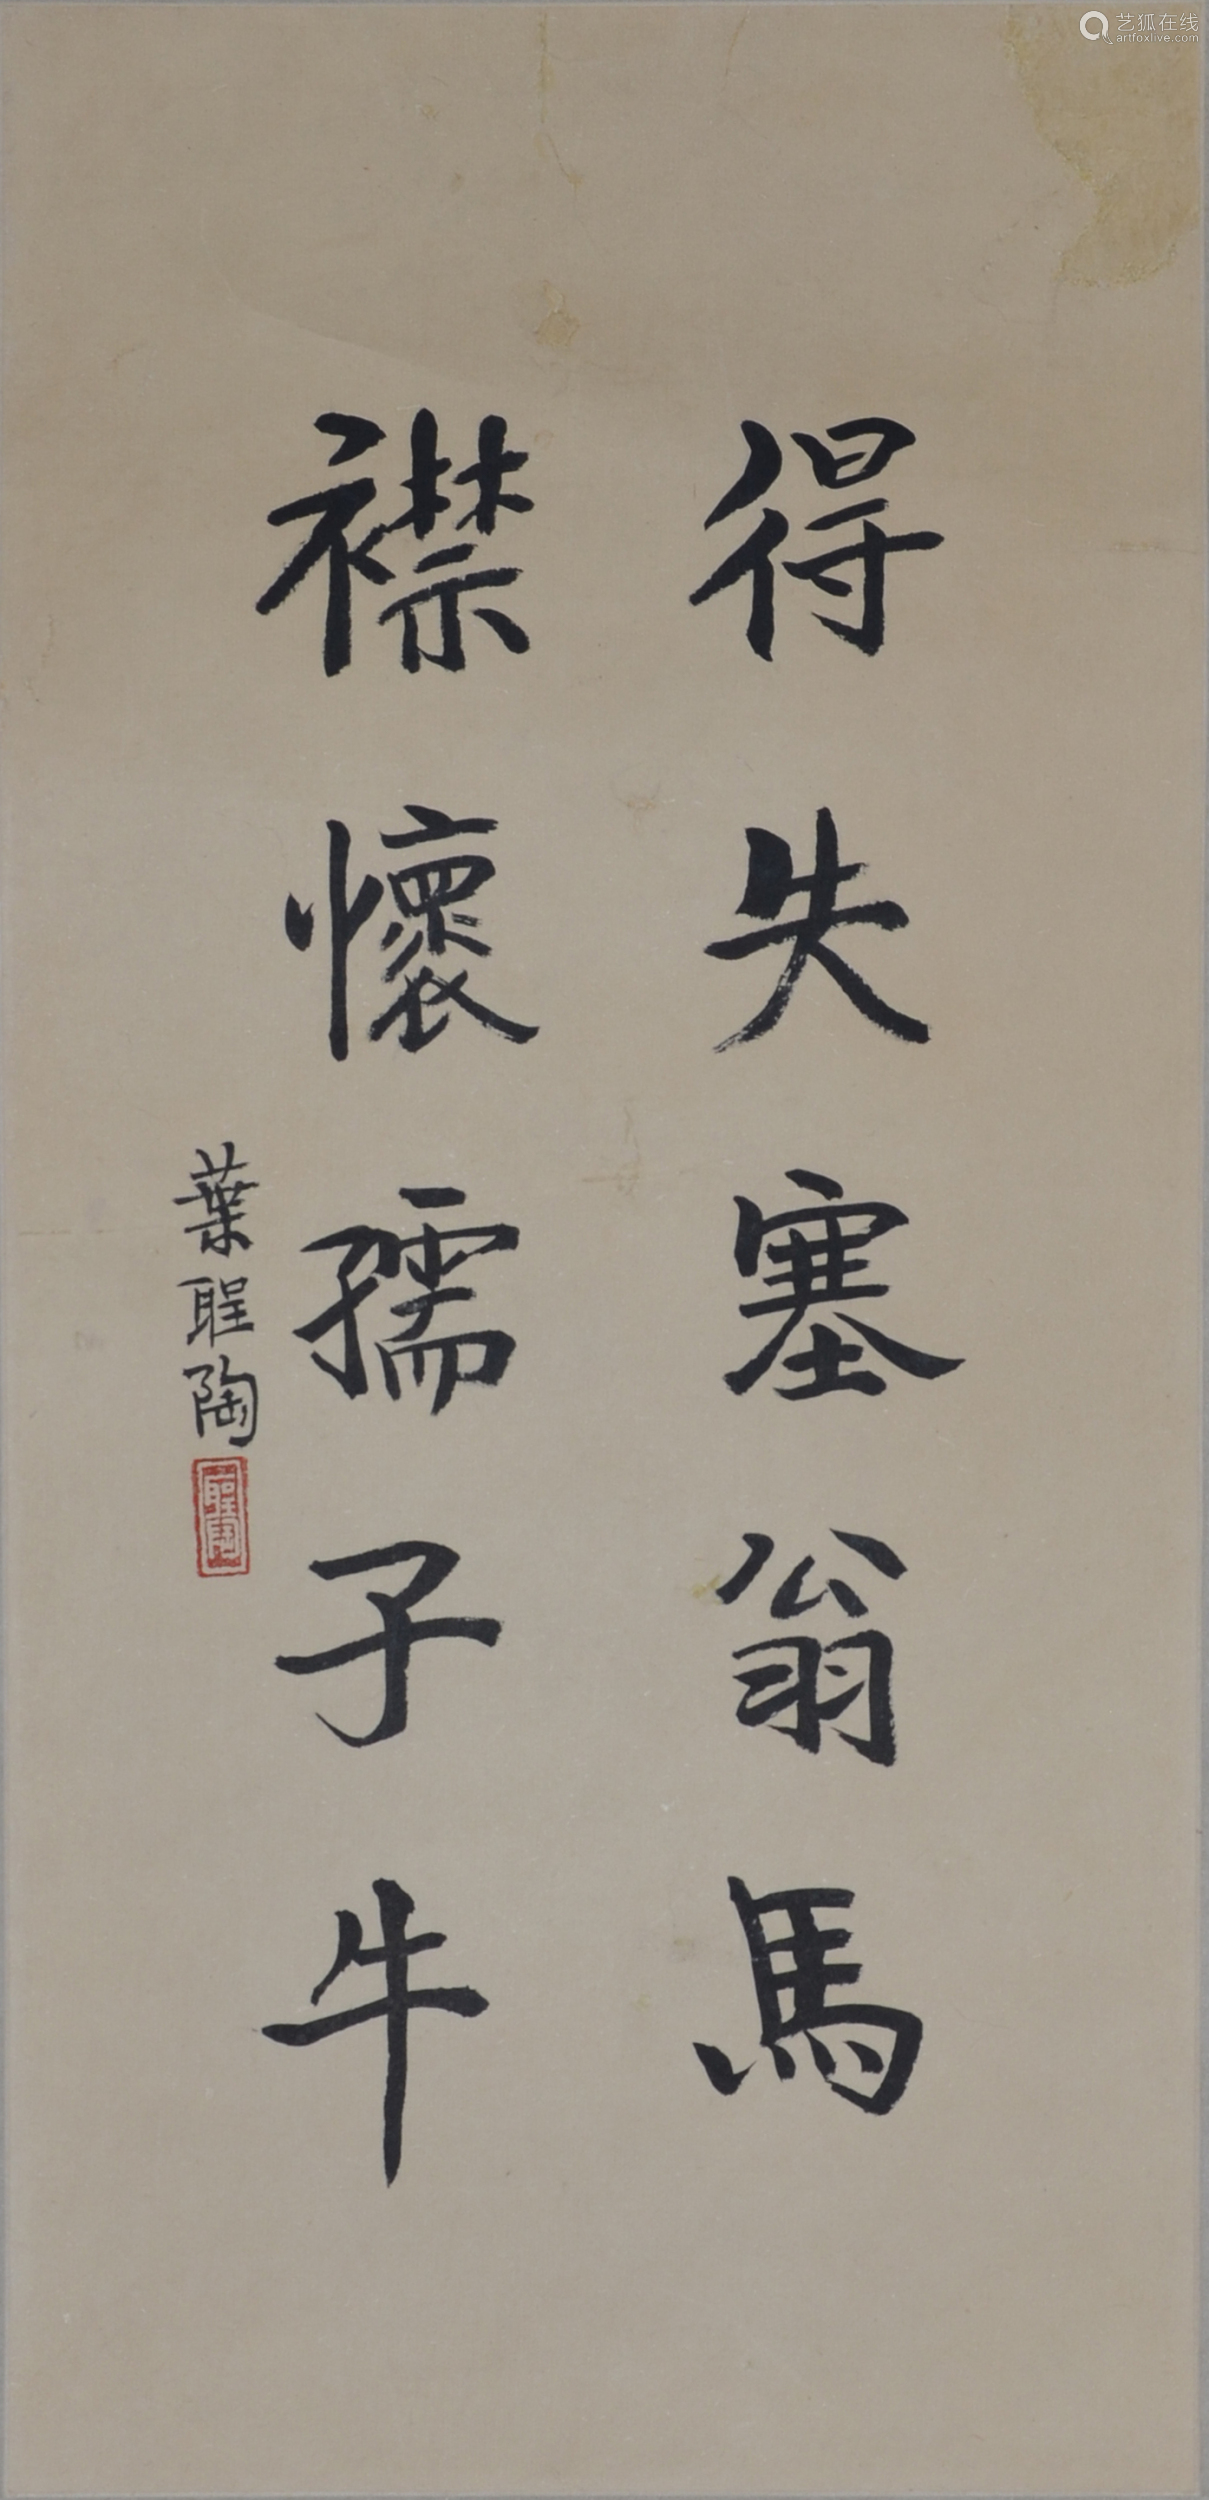 得失塞翁馬
襟懷孺子牛
葉聖陶
聖陶
艺狐在线
artfoxlive.com